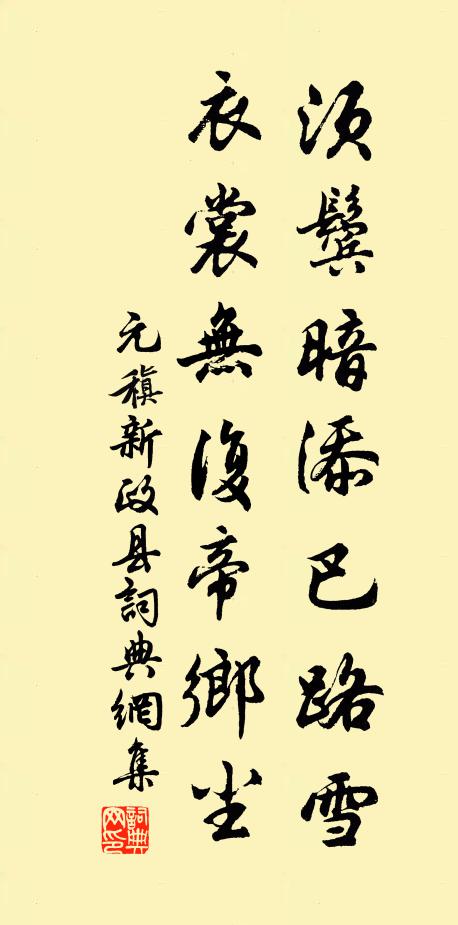 须鬓暗添巴路雪
衣裳無復帝鄉尘
元稹新政县詞典網集
詞典網印